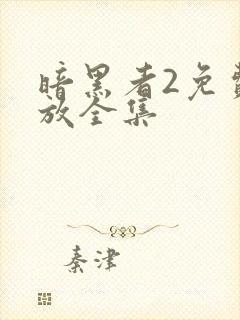 暗黑者2免费
放全集
秦津